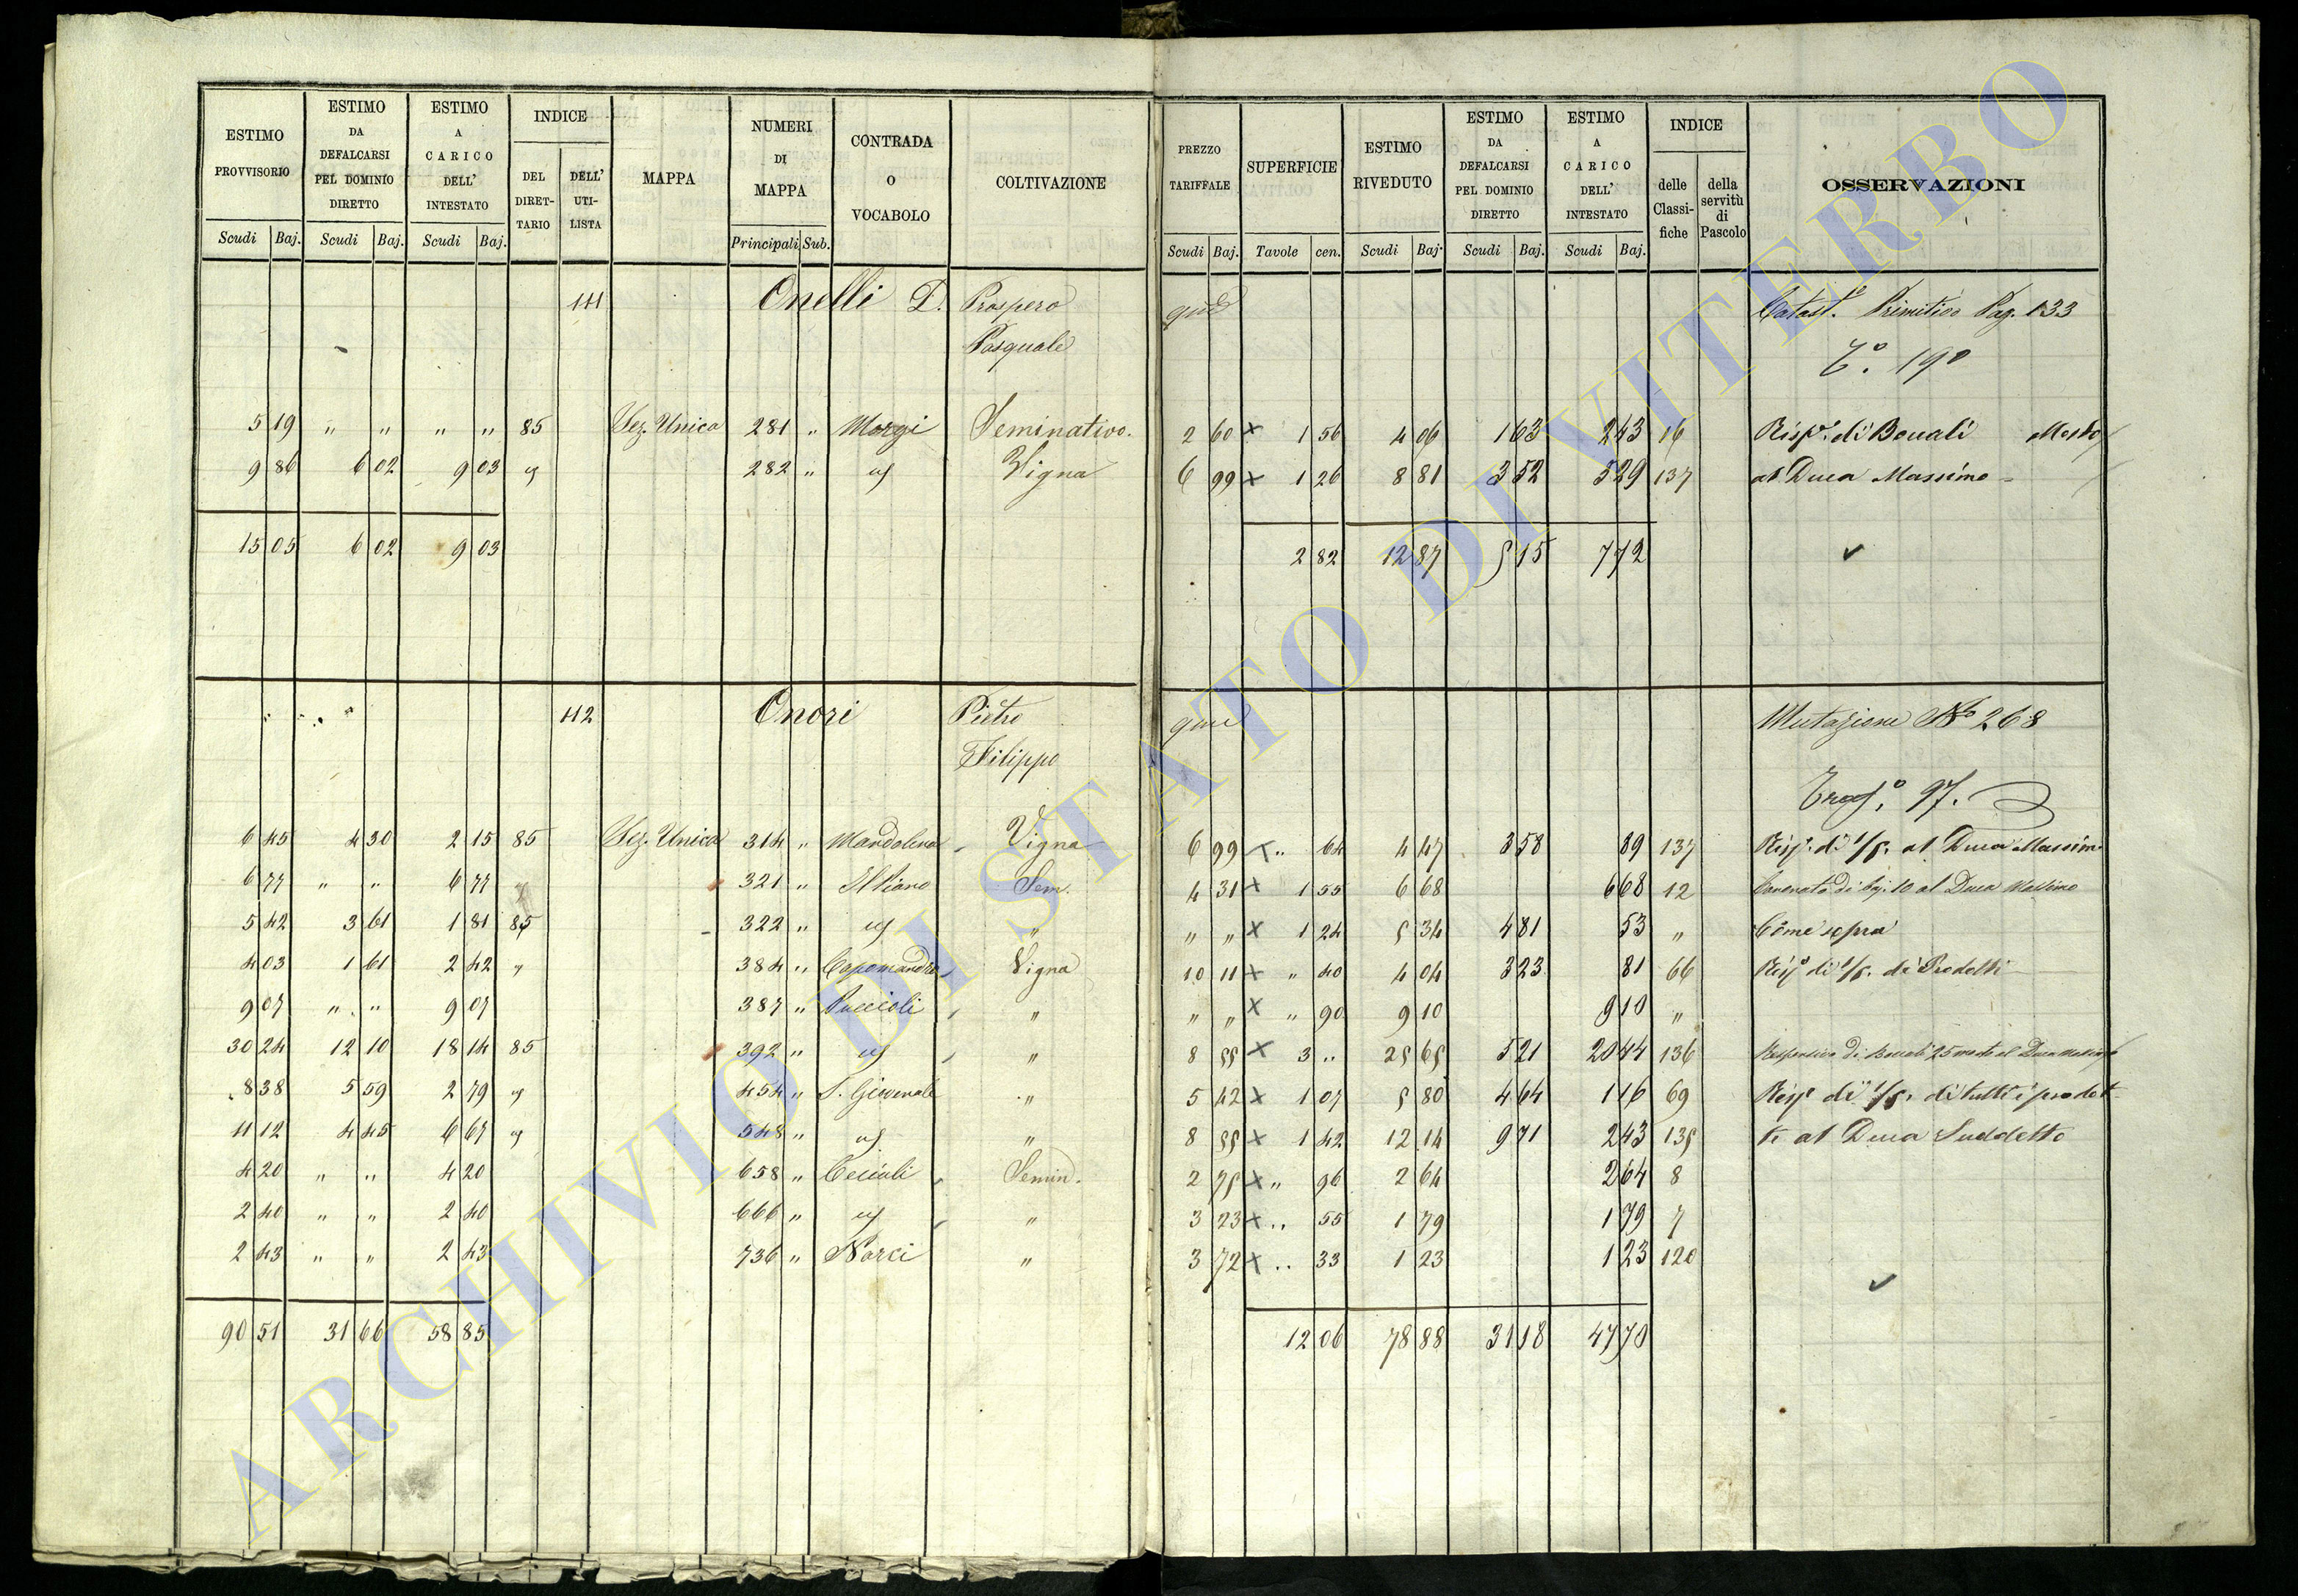 ESTIMO PROVVISORIO Scudi Baj. ESTIMO DA DEFALCARSI PEL DOMINIO DIRETTO Scudi Baj. ESTIMO A CARICO DELL' INTESTATO Scudi Baj. INDICE DEL DIRET-TARIO DELL' UTI-LISTA MAPPA NUMERI DI MAPPA Principali Sub. CONTRADA O VOCABOLO COLTIVAZIONE PREZZO TARIFFALE Scudi Baj. SUPERFICIE Tavole cen. ESTIMO RIVEDUTO Scudi Baj. ESTIMO DA DEFALCARSI PEL DOMINIO DIRETTO Scudi Baj. ESTIMO A CARICO DELL' INTESTATO Scudi Baj. INDICE delle Classi-fiche della servitù di Pascolo OSSERVAZIONI
111 Onelli D. Prospero qm Catast.º Primitivo Pag. 133
Pasquale
Tº. 190
5 19 " " " " 85 Sez. Unica 281 " Morgi Seminativo. 2 60 x 1 56 4 06 1 63 2 43 16 Rispª. di Bocali Mosto
9 86 6 02 9 03 " 282 " " Vigna 6 99 x 1 26 8 81 3 52 5 29 137 al Duca Massimo
15 05 6 02 9 03 2 82 12 87 5 15 7 72
112 Onori Pietro qm Mutazione Nº 268
Filippo
97.
6 45 4 30 2 15 85 Sez. Unica 314 " Mandolena Vigna 6 99 x " 64 4 47 3 58 89 137 Risp. di 1/5. al Duca Massimo
6 77 " " 6 77 321 " Il Piano Sem. 4 31 x 1 55 6 68 6 68 12 Canonato di bj. 10 al Duca Massimo
5 42 3 61 1 81 85 322 " " " " " x 1 24 5 34 4 81 53 " Come sopra
4 03 1 61 2 42 " 384 " Capomandro Vigna 10 11 x " 40 4 04 3 23 81 66 Rispª di 1/5. de Prodotti
9 07 " " 9 07 387 " Puccioli " " " x " 90 9 10 9 10 "
30 24 12 10 18 14 85 392 " " " 8 55 x 3 " 25 65 5 21 20 44 136 Responsiva di Bocali 25 mosto al Duca Massimo
8 38 5 59 2 79 " 454 " S. Giovenale " 5 42 x 1 07 5 80 4 64 1 16 69 Rispª di 1/5. di tutti i prodot-
11 12 4 45 6 67 " 548 " " " 8 55 x 1 42 12 14 9 71 2 43 135 ti al Duca Suddetto
4 20 " " 4 20 658 " Ceccioli Semin. 2 75 x " 96 2 64 2 64 8
2 40 " " 2 40 666 " " " 3 23 x " 55 1 79 1 79 7
2 43 " " 2 43 736 " Narci " 3 72 x " 33 1 23 1 23 120
90 51 31 66 58 85 12 06 78 88 31 18 47 70
ARCHIVIO DI STATO DI VITERBO